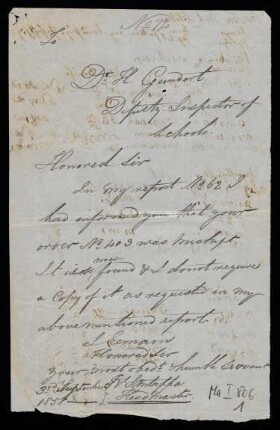 To
Dr H Gundert
Deputy Inspector of
Schools
Honored Sir
In my report No 62 I
had informed you that your
order No 403 was mislaid.
It is now found & I do not require
a Copy of it as requested in my
abovementioned report.
I remain
Honored Sir
your most obedt & humble Servant
3rd September
185
Head Master
Ma I 806
1